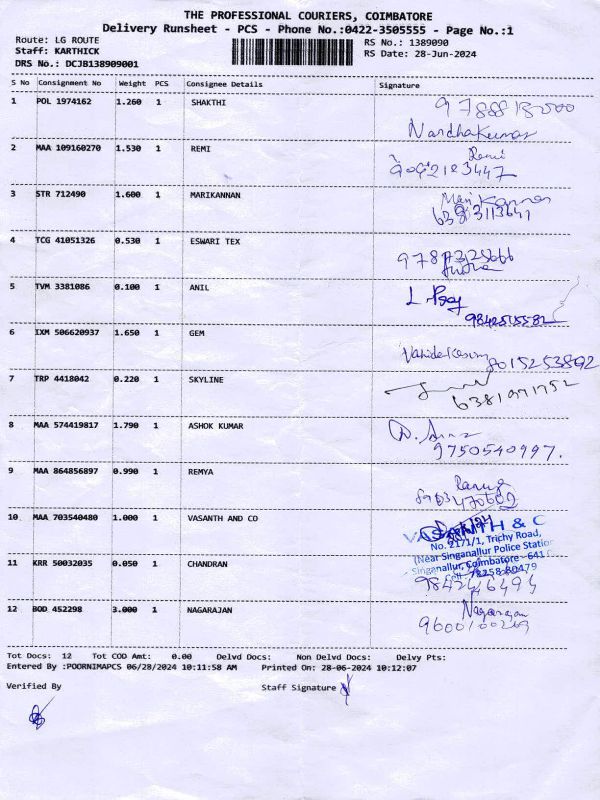 THE PROFESSIONAL COURIERS, COIMBATORE
Delivery Runsheet - PCS - Phone No.:0422-3505555 - Page No.:1
Route: LG ROUTE
RS No.: 1389090
Staff: KARTHICK
RS Date: 28-Jun-2024
DRS No.: DCJB138909001
S No Consignment No Weight PCS Consignee Details Signature
1 POL 1974162 1.260 1 SHAKTHI
Nandhakumar
2 MAA 109160270 1.530 1 REMI
Remi
3 STR 712490 1.600 1 MARIKANNAN
Mari Kannan
4 TCG 41051326 0.530 1 ESWARI TEX
5 TVM 3381086 0.100 1 ANIL
6 IXM 506620937 1.650 1 GEM
7 TRP 4418042 0.220 1 SKYLINE
8 MAA 574419817 1.790 1 ASHOK KUMAR
9750540997.
9 MAA 864856897 0.990 1 REMYA
10 MAA 703540480 1.000 1 VASANTH AND CO
No. 2171/1, Trichy Road,
(Near Singanallur Police Station
Singanallur, Coimbatore - 641
11 KRR 50032035 0.050 1 CHANDRAN
12 BOD 452298 3.000 1 NAGARAJAN
Nagarajan
Tot Docs: 12 Tot COD Amt: 0.00 Delvd Docs: Non Delvd Docs: Delvy Pts:
Entered By :POORNIMAPCS 06/28/2024 10:11:58 AM Printed On: 28-06-2024 10:12:07
Verified By Staff Signature